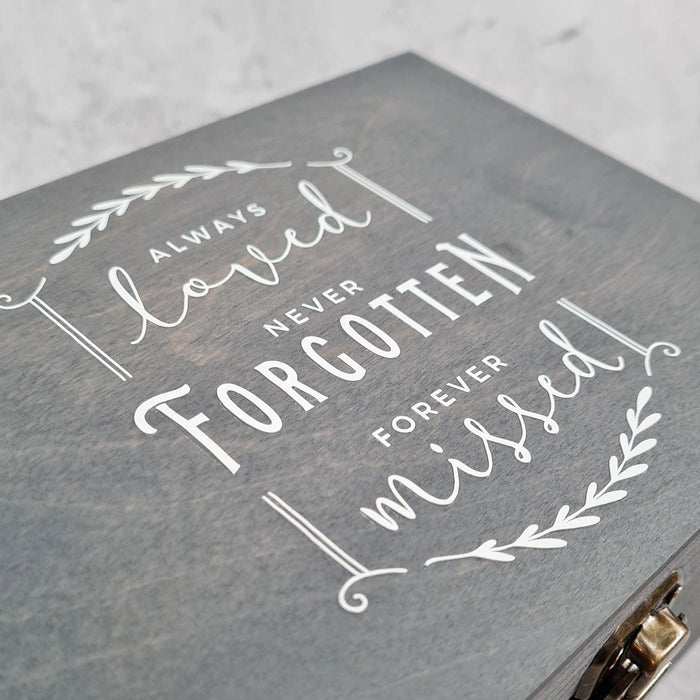 ALWAYS
loved
NEVER
FORGOTTEN
FOREVER
missed